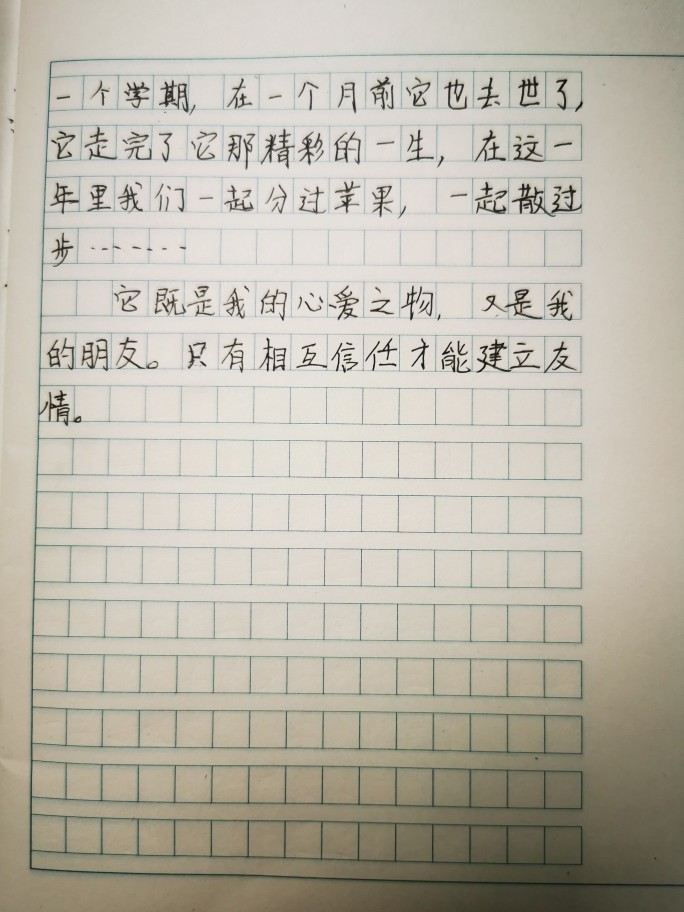 一个学期，在一个月前它也去世了，
它走完了它那精彩的一生，在这一
年里我们一起分过苹果，一起散过
步……
它既是我的心爱之物，又是我
的朋友。只有相互信任才能建立友
情。